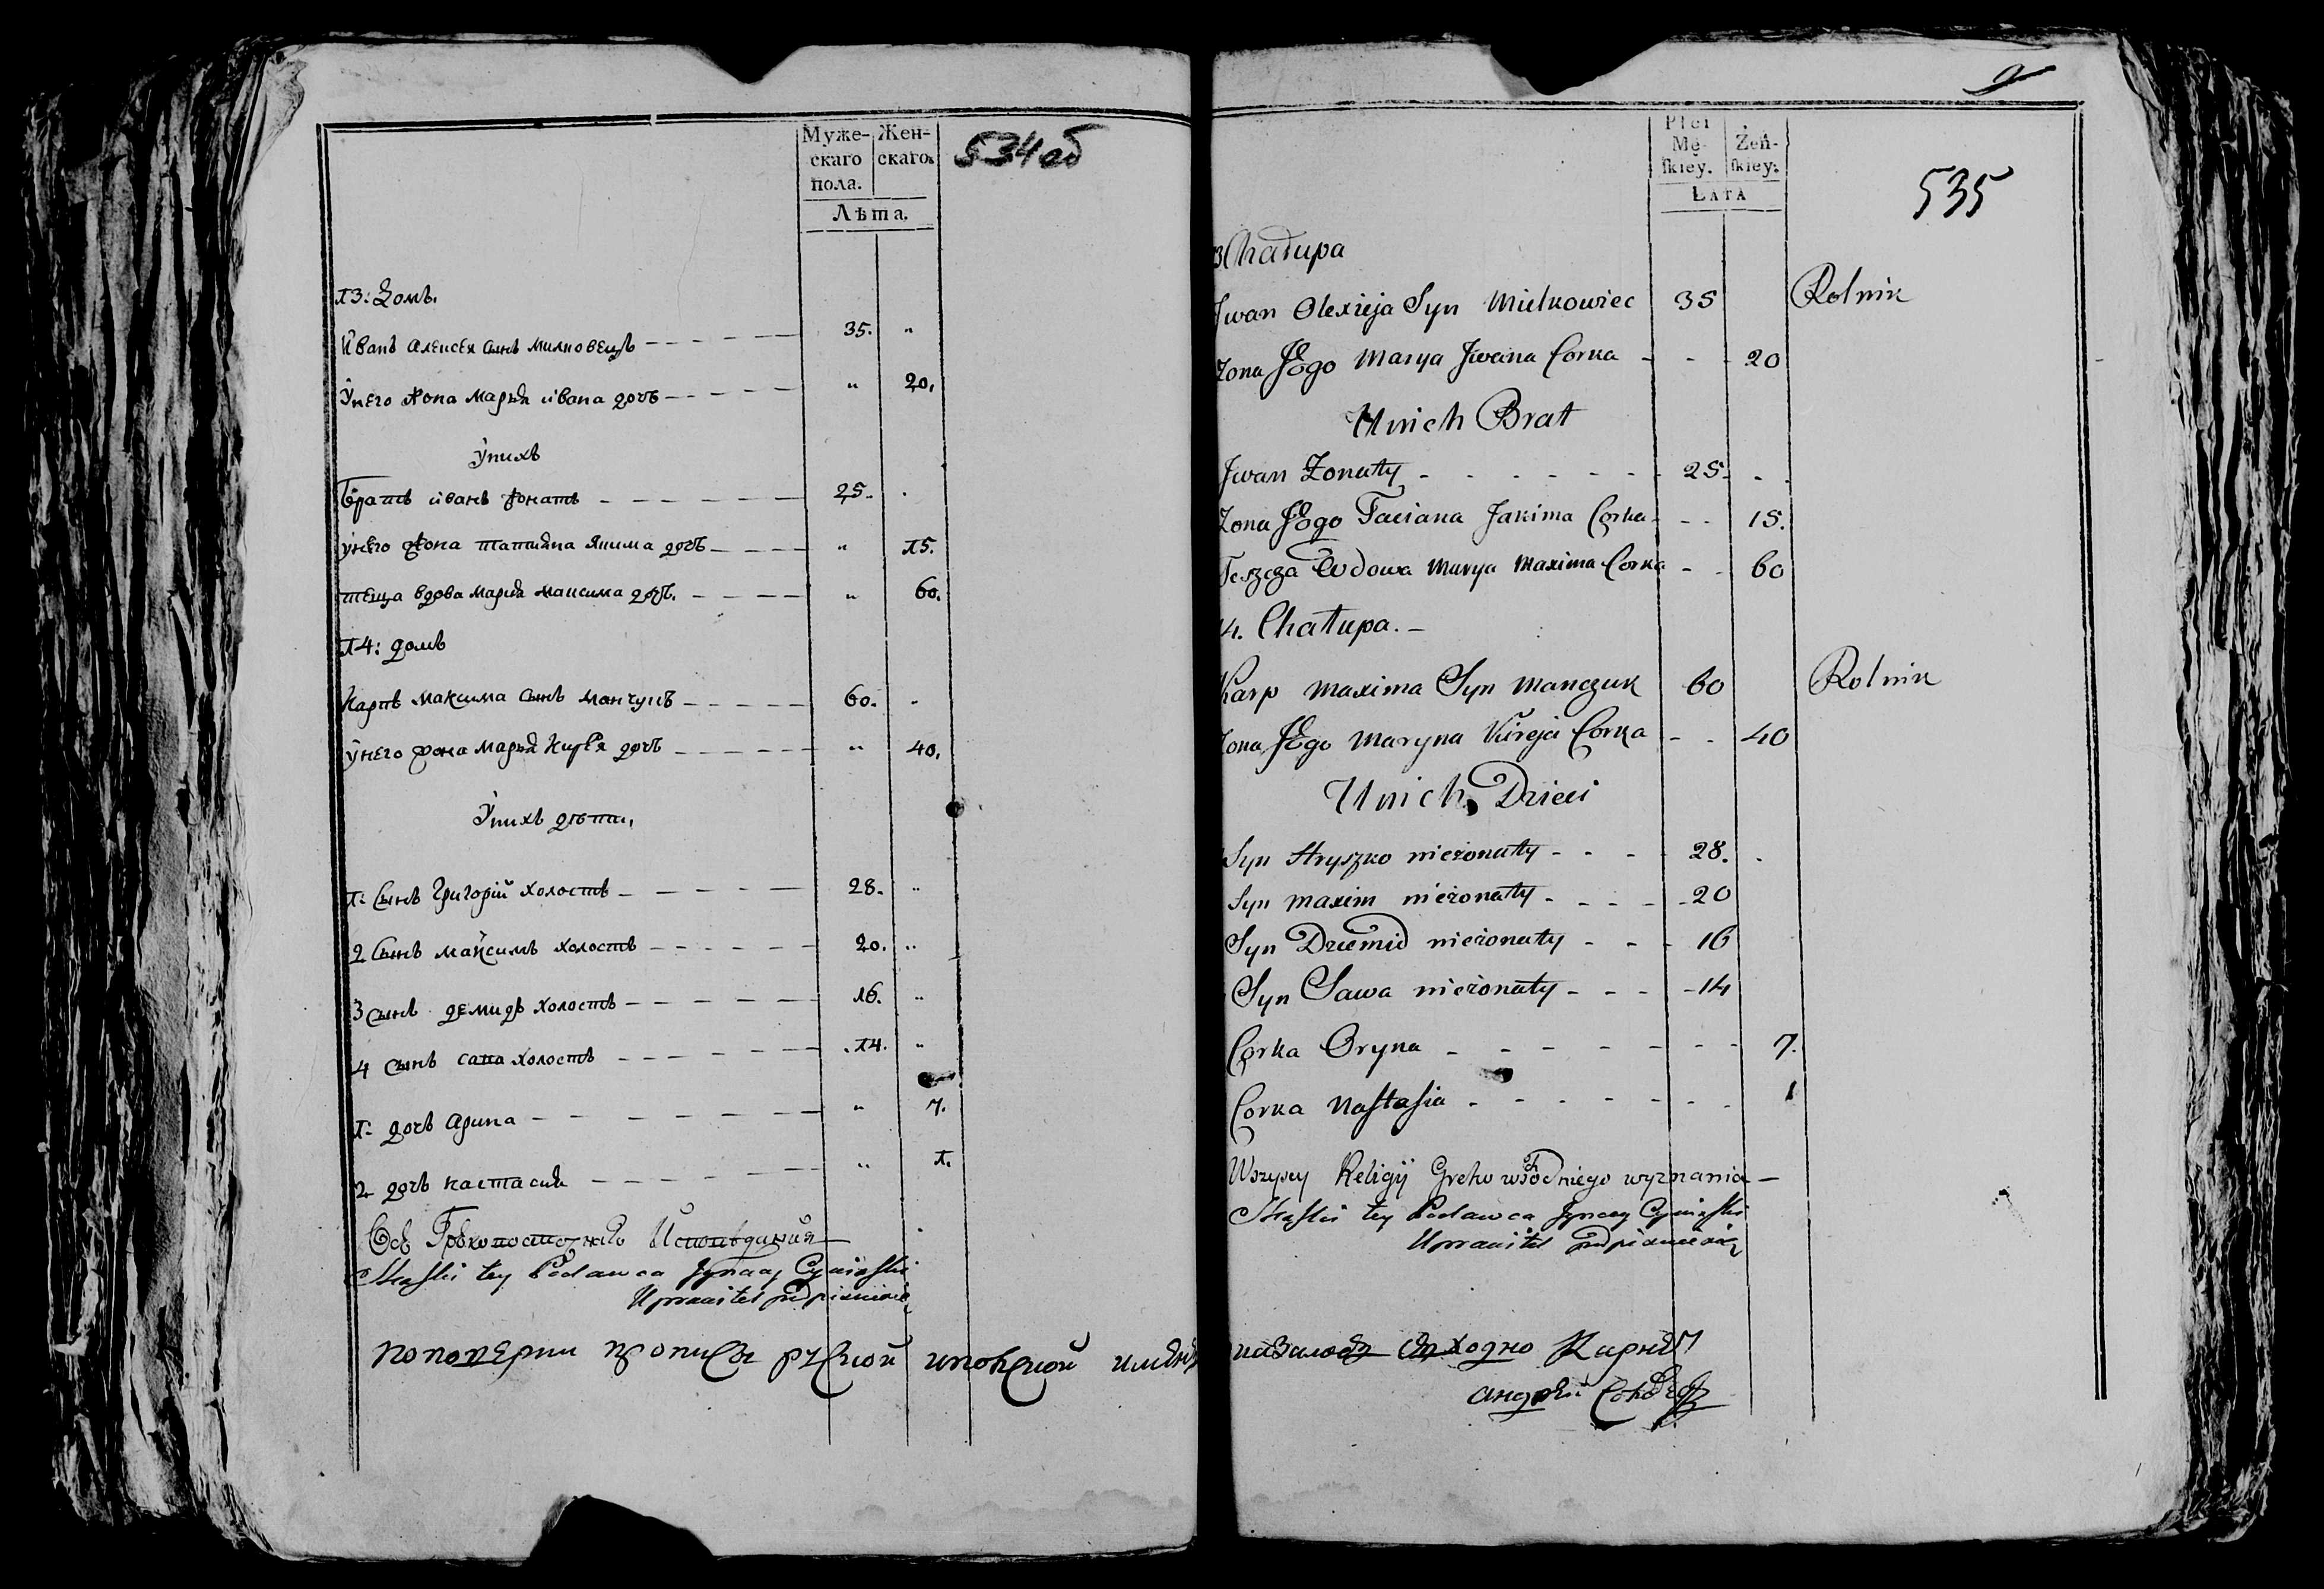 Муже-
скаго
пола.
Жен-
скаго.
534 об
Лѣта.
13: Домъ.
Иванъ Алексея сынъ Милковецъ 35. "
У него жона Марья Ивана дочъ " 20.
У нихъ
Братъ Иванъ жонатъ 25.
У него жона Татияна Якима дочъ " 15.
теща вдова Мария Максима дочъ. " 60.
14: домъ
Карпъ Максима сынъ Манчукъ 60.
У него жона Марья Кирея дочъ " 40.
У нихъ дѣти,
1: Сынъ Григорій холостъ 28. "
2 Сынъ Максимъ холостъ 20. "
3 сынъ демидъ холостъ 16. "
4 сынъ сава холостъ 14. "
1: дочь Арина " 7.
2 дочь настасия " 1.
Всѣ Исповѣдания
Skaski tey Podawca Jgnacy
Uprawitel podpisuie się
Płci
Mę-
ſkiey.
Żeń-
ſkiey.
2
535
LATA
3 Chałupa
Jwan Olexieja Syn Mielkowiec 35 Rolnik
Zona Jego Marya Jwana Corka 20
U nich Brat
Jwan Zonaty 25.
Zona Jego Taciana Jakima Corka 15.
Teszcza Wdowa Marya Maxima Corka 60
4. Chałupa.
Karp Maxima Syn Manczuk 60 Rolnik
Zona Jego Maryna Kireja Corka 40
U nich Dzieci
Syn Hryszko nieżonaty 28.
Syn Maxim nieżonaty 20
Syn Dziemid nieżonaty 16
Syn Sawa nieżonaty 14
Corka Oryna 7.
Corka Nastasia 1
Wszyscy Religij wyznania
Skaski tey Podawca Jgnacy
Uprawitel podpisuie się
сходно
Андрей